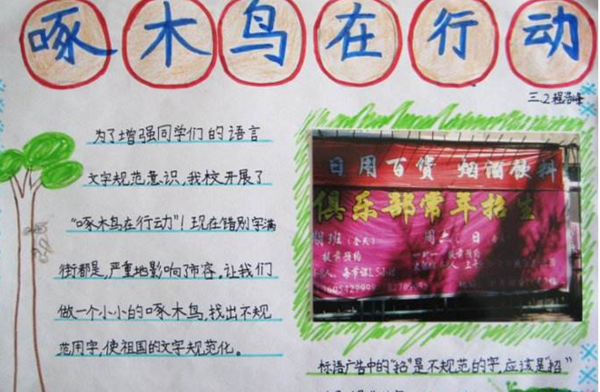 啄木鸟在行动
三.2程浩峰
为了增强同学们的语言
文字规范意识,我校开展了
“啄木鸟在行动”!现在错别字满
街都是,严重地影响了市容。让我们
做一个小小的啄木鸟,找出不规
范用字,使祖国的文字规范化。
日用百货 烟酒饮料
俱乐部常年招生
周二、日
标语广告中的“招”是不规范的字,应该是“招”